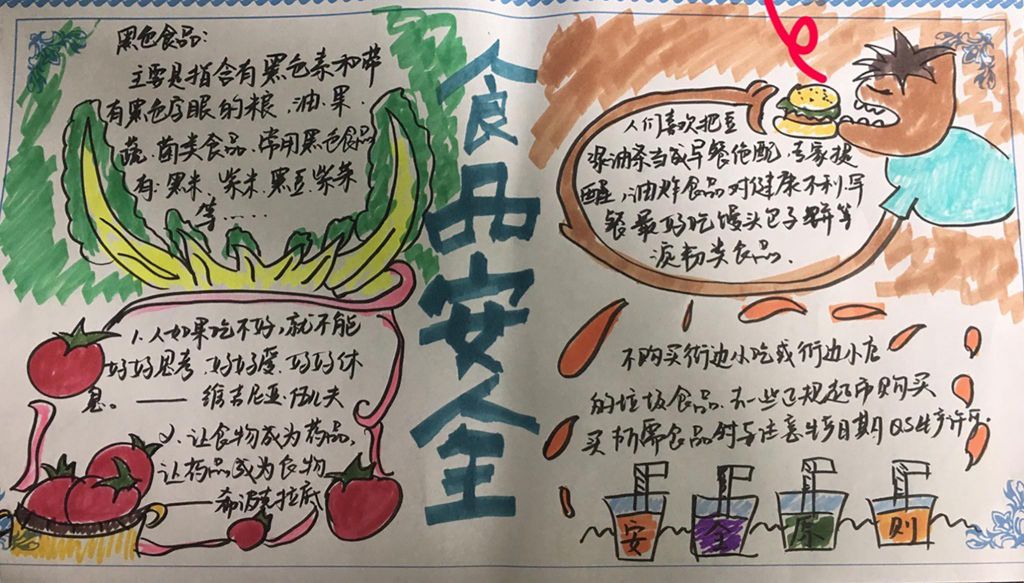 黑色食品:
主要是指含有黑色素和带
有黑色字眼的粮、油、果、
蔬、菌类食品、常用黑色食品
有:黑米、紫米、黑豆、紫菜
等……
食品安全
人们喜欢把豆
浆油条当成早餐绝配,专家提
醒,油炸食品对健康不利,早
餐最好吃馒头包子饼等
淀粉类食品.
1.人如果吃不好,就不能
好好思考、好好爱、好好休
息。——维吉尼亚·伍尔夫
2、让食物成为药品,
让药品成为食物
——希波克拉底
不购买街边小吃或街边小店
的垃圾食品.去一些正规超市购买
买所需食品时与注意生产日期QS生产许可.
安全原则